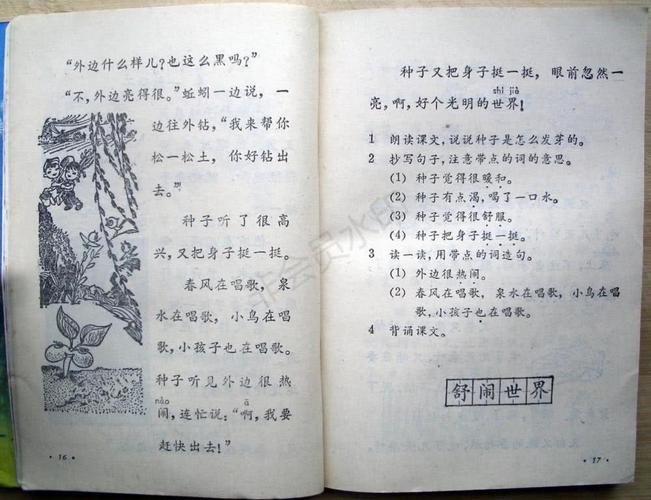 “外边什么样儿?也这么黑吗?”
“不,外边亮得很。”蚯蚓一边说,一
边往外钻,“我来帮你
松一松土,你好钻出
去。”
种子听了很高
兴,又把身子挺一挺。
春风在唱歌,泉
水在唱歌,小鸟在唱
歌,小孩子也在唱歌。
种子听见外边很热
nào ā
闹,连忙说:“啊,我要
赶快出去!”
·16·
种子又把身子挺一挺,眼前忽然一
shì jiè
亮,啊,好个光明的世界!
1 朗读课文,说说种子是怎么发芽的。
2 抄写句子,注意带点的词的意思。
(1) 种子觉得很暖和。
(2) 种子有点渴,喝了一口水。
(3) 种子觉得很舒服。
(4) 种子把身子挺一挺。
3 读一读,用带点的词造句。
(1) 外边很热闹。
(2) 春风在唱歌,泉水在唱歌,小鸟在唱
歌,小孩子也在唱歌。
4 背诵课文。
舒闹世界
·17·
非会员水印